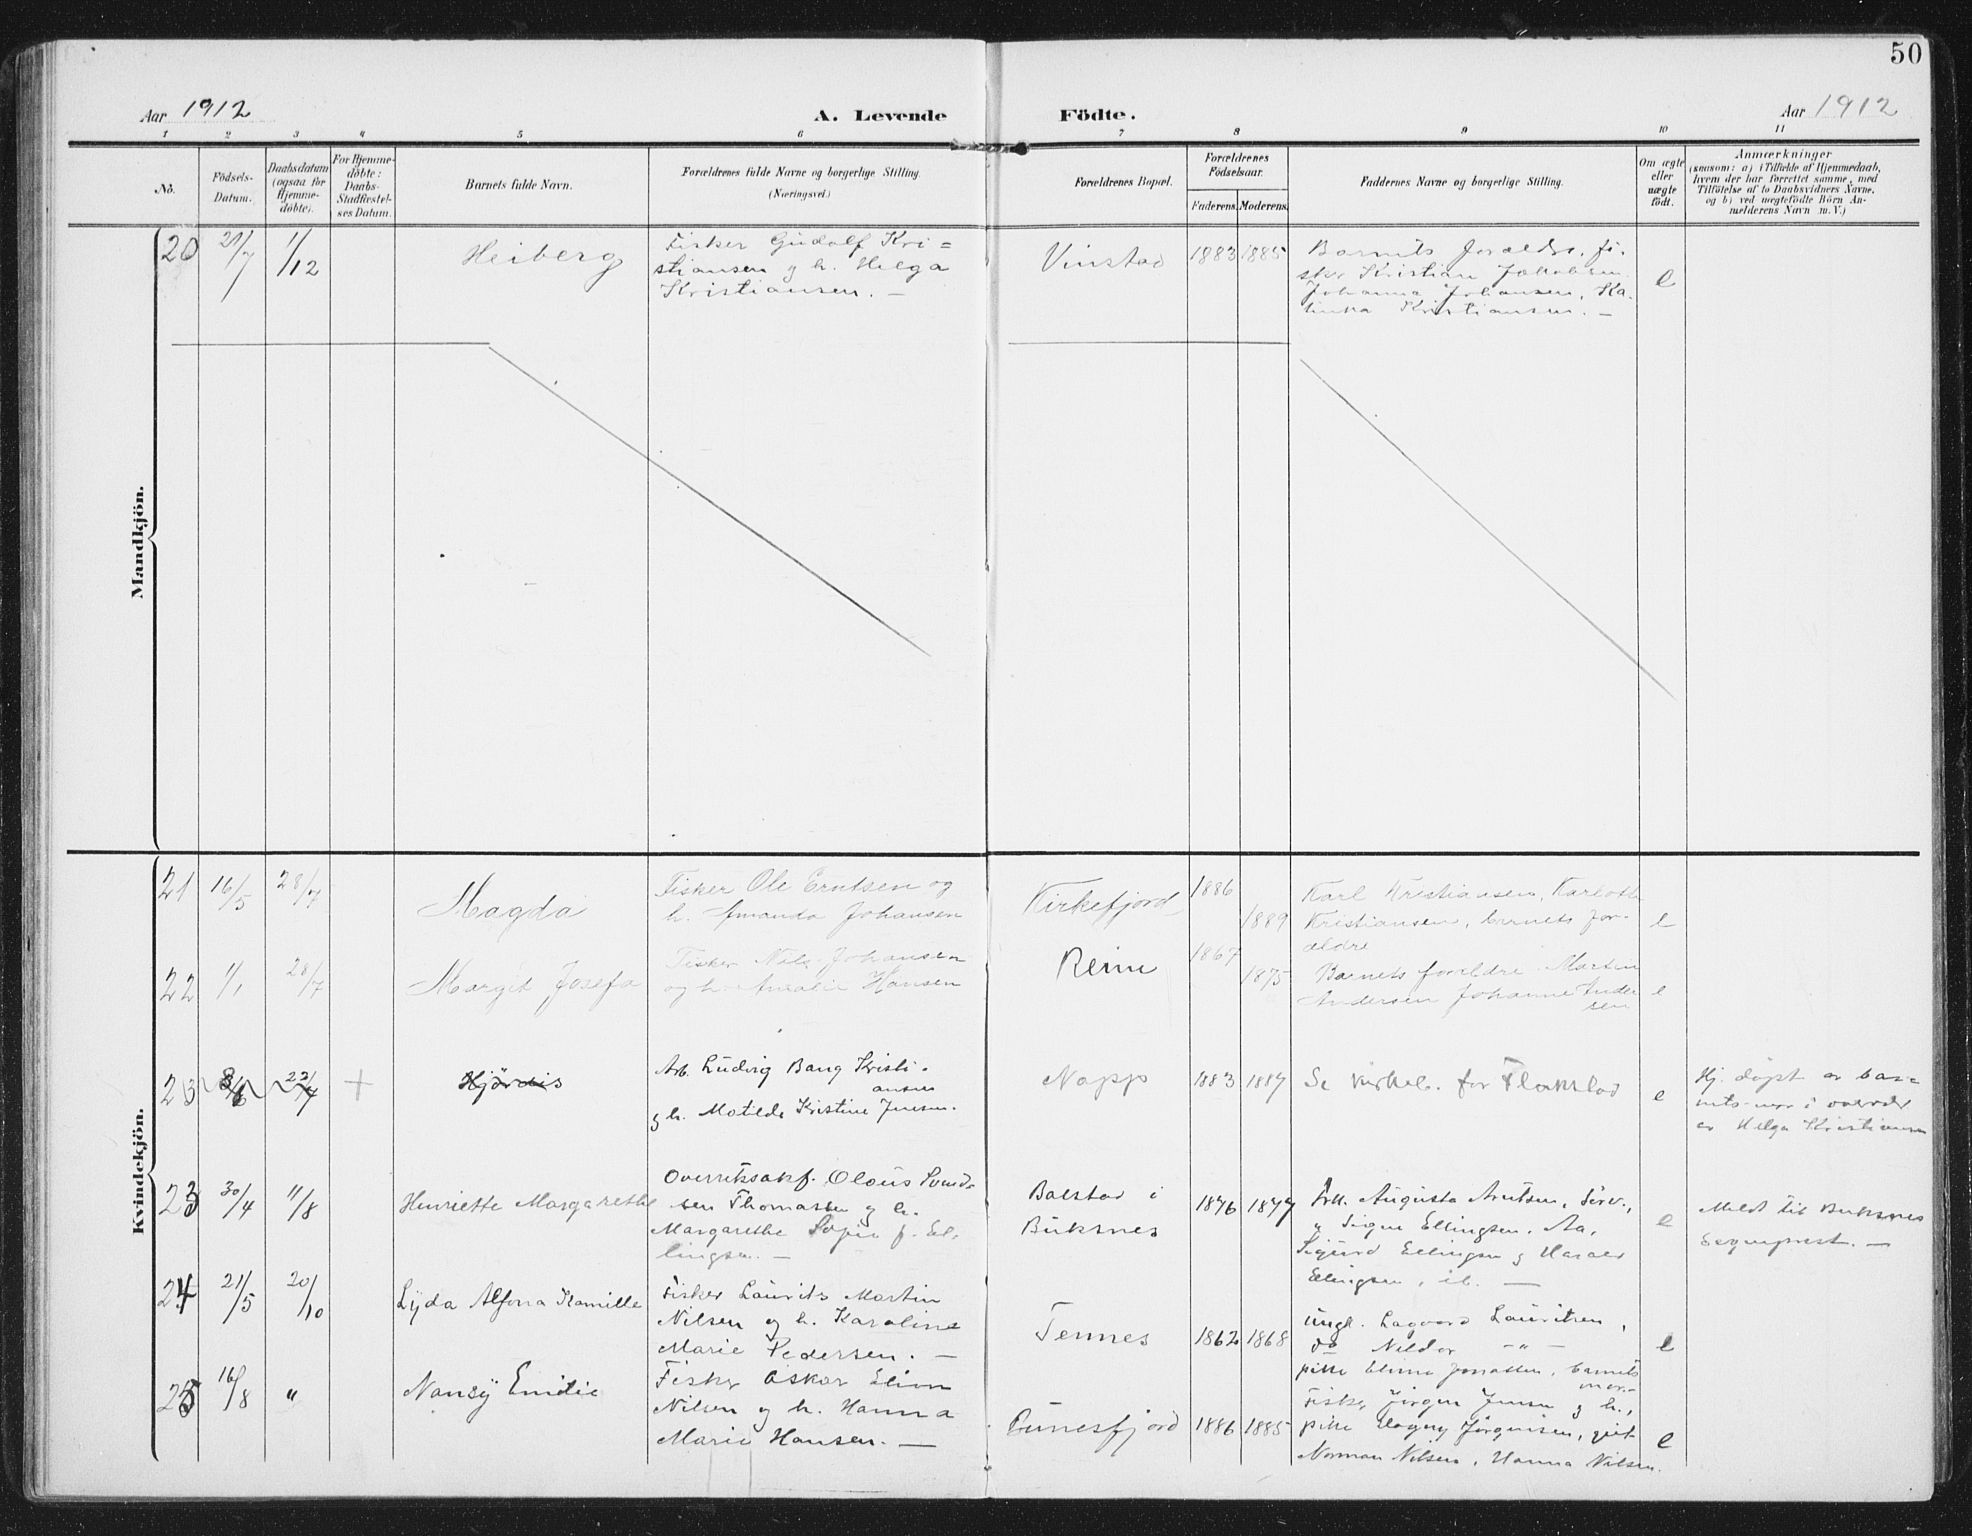 50
Aar 1912
A. Levende Födte.
Aar 1912
1 2 3 4 5 6 7 8 9 10 11
No.
Födsels-
Datum.
Daabsdatum
(ogsaa for
Hjemme-
döbte).
For Hjemme-
döbte:
Daabs-
Stadfæstel-
ses Datum.
Barnets fulde Navn.
Forældrenes fulde Navne og borgerlige Stilling.
(Næringsvei.)
Forældrenes Bopæl.
Forældrenes
Födselsaar.
Faderens. Moderens.
Faddernes Navne og borgerlige Stilling.
Om ægte
eller
uægte
födt.
Anmærkninger
(saasom: a) i Tilfælde af Hjemmedaab,
hvem der har forrettet samme, med
Tilföielse af to Daabsvidners Navne,
og b) ved uægtefödte Börn An-
melderens Navn m. V.)
Mandkjön.
20 21/7 1/12 Heiberg
Fisker Gudolf Kri=
stiansen g h. Helga
Kristiansen. —
Vinstad 1883 1885
Barnets foreldre, fi-
sker Kristian Jakobsen
Johanna Johansen, Ka-
tinka Kristiansen. —
e
Kvindekjön.
21 16/5 28/7 Magda
Fisker Ole Erntsen og
h. Amanda Johansen
Kirkefjord 1886 1889
Karl Kristiansen, Karloth
Kristiansen, barnets for-
ældre
e
22 1/1 28/7 Margit Josefa
Fisker Nils Johansen
og h. Amalie Hansen
Reine 1867 1875
Barnets foreldre Martin
Andersen Johanne Ander
sen
e
23 8/6 22/7 + Hjördis
Arb. Ludvig Bang Kristi-
ansen
g h. Matilde Kristine Jensen.
Napp 1883 1887
Se kirkeb. for Flakstad
e
Hj. døpt av bar-
nets mor i overvær
av Helga Kristiansen
23 30/4 11/8 Henriette Margarethe
Overretssakf. Olaus Svend-
sen Thomassen g h.
Margarethe Sofie f. El-
lingsen. —
Balstad i
Buksnes
1876 1877
Frk. Augusta Arntsen,
g Signe Ellingsen, Aa,
Sigurd Ellingsen g Harald
Ellingsen, ib. —
e
Meldt til Buksnes
sogneprest. —
24 21/5 20/10 Lyda Alfona Kamille
Fisker Laurits Martin
Nilsen og h. Karoline
Marie Pedersen. —
Tennes 1862 1868
ungk. Lagvard Lauritsen,
do Nildor -"-
pike Elina Jonassen, barnets
mor.-
e
25 16/8 " Nancy Emilie
Fisker Oskar Elion
Nilsen og h. Hanna
Marie Hansen. —
Bunesfjord 1886 1885
Fisker Jörgen Jensen g h.,
pike Dagny Jörgensen, gut
Norman Nilsen, Hanna Nilsen.
e